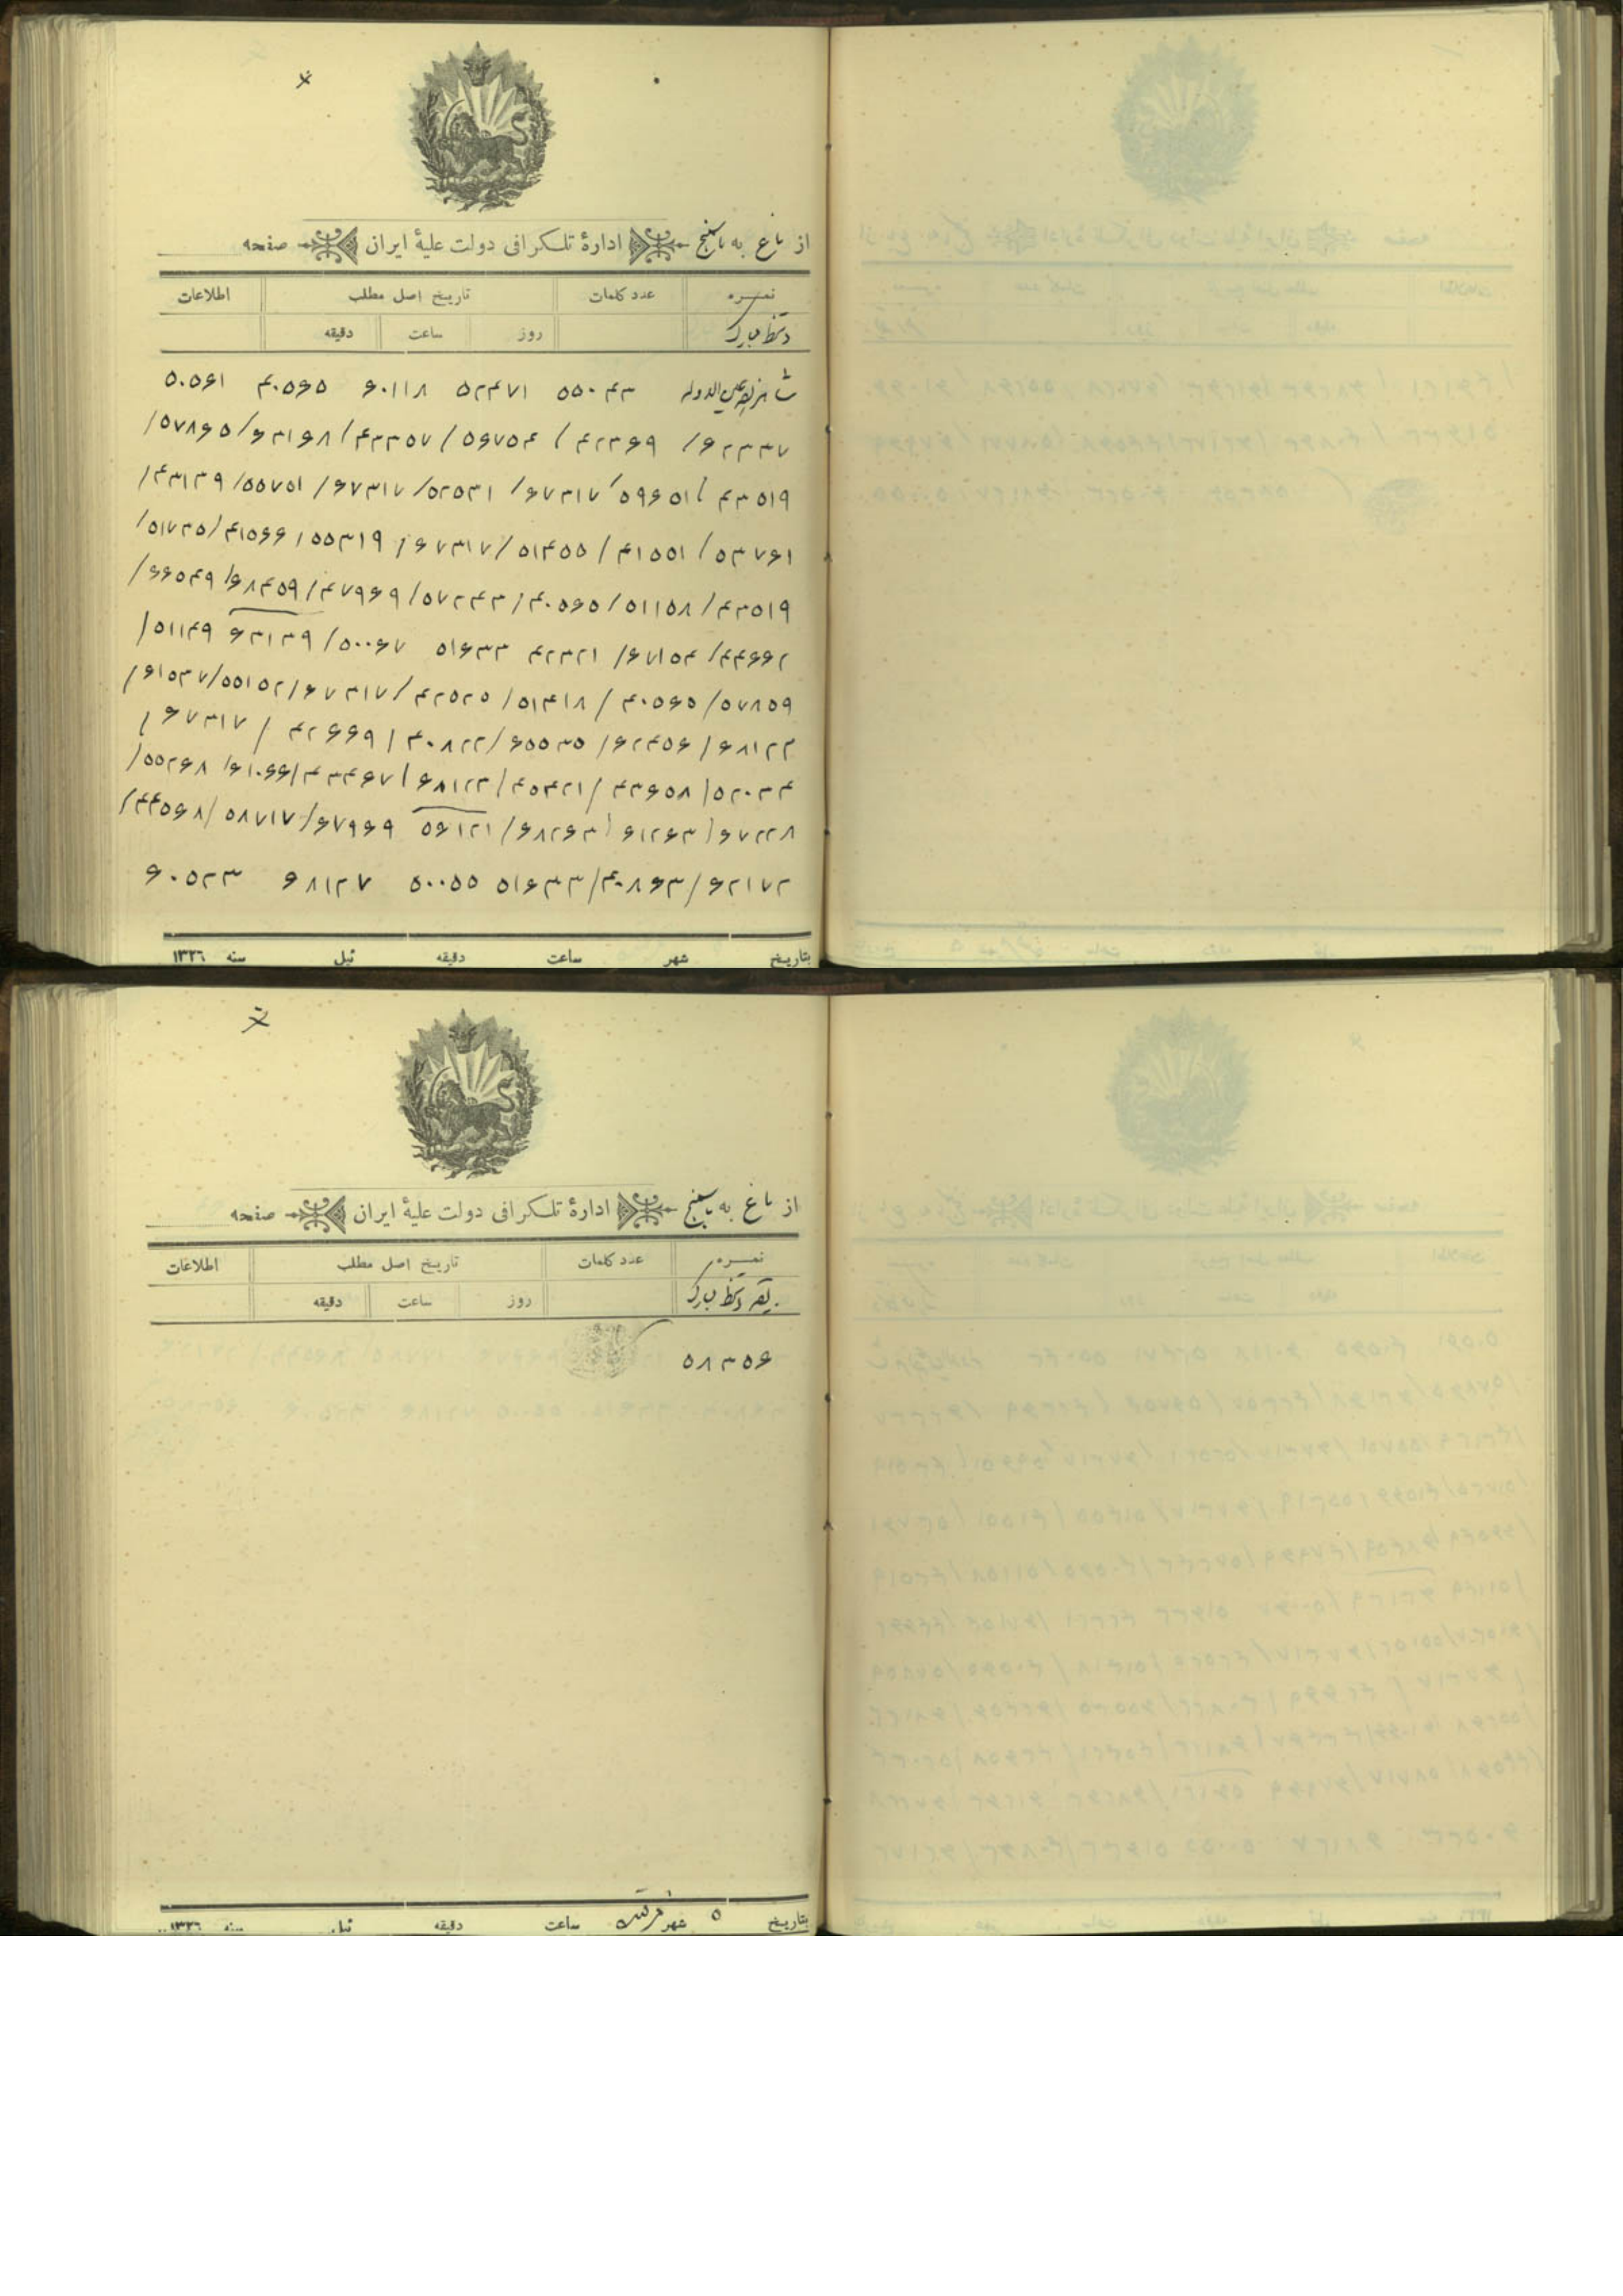 از باغ به باسمنج ادارهٔ تلگرافی دولت علیهٔ ایران صفحه
نمره عدد کلمات تاریخ اصل مطلب اطلاعات
دستخط مبارک روز ساعت دقیقه
۵۵۰۴۳ ۵۲۴۷۱ ۶۰۱۱۸ ۴۰۵۶۵ ۵۰۵۶۱
۶۲۳۳۷/ ۴۲۳۶۹ / ۵۶۷۵۴ / ۴۳۳۵۷/ ۶۳۱۶۸/ ۵۷۸۶۵/
۴۳۵۱۹ / ۵۹۶۵۱ / ۶۷۳۱۷/ ۵۲۵۳۱/ ۶۷۳۱۷/ ۵۵۷۵۱/ ۴۳۱۳۹/
۵۳۷۶۱/ ۴۱۵۵۱/ ۵۱۴۵۵/ ۶۷۳۱۷/ ۵۵۳۱۹/ ۴۱۵۶۶/ ۵۱۷۳۵/
۴۳۵۱۹/ ۵۱۱۵۸/ ۴۰۵۶۵/ ۵۷۲۴۳/ ۴۷۹۶۹/ ۶۸۴۵۹/ ۶۶۵۴۹/
۴۴۶۶۲/ ۶۷۱۵۴/ ۴۲۳۲۱ ۵۱۶۳۳ ۵۰۰۶۷/ ۶۳۱۳۹ ۵۱۱۴۹/
۵۷۸۵۹/ ۴۰۵۶۵/ ۵۱۴۱۸/ ۴۲۵۲۵/ ۶۷۳۱۷/ ۵۵۱۵۲/ ۶۱۵۳۷/
۶۸۱۲۳/ ۶۲۴۵۶/ ۶۵۵۳۵/ ۴۰۸۲۲/ ۴۲۶۶۹ / ۶۷۳۱۷/
۵۲۰۳۴/ ۴۳۶۵۸/ ۴۵۴۲۱/ ۶۸۱۲۳/ ۴۳۴۶۷/ ۶۱۰۶۶/ ۵۵۲۶۸/
۶۷۲۲۸/ ۶۱۲۶۳/ ۶۸۲۶۳/ ۵۶۱۲۱ ۶۷۹۶۹/ ۵۸۷۱۷/ ۴۴۵۶۸/
۶۲۱۷۲/ ۴۰۸۶۳/ ۵۱۶۳۳ ۵۰۰۵۵ ۶۸۱۲۷ ۶۰۵۲۳
بتاریخ شهر ساعت دقیقه قبل سنه ۱۳۲۶
از باغ به باسمنج ادارهٔ تلگرافی دولت علیهٔ ایران صفحه
نمره عدد کلمات تاریخ اصل مطلب اطلاعات
بقیه دستخط مبارک روز ساعت دقیقه
۵۸۳۵۶
بتاریخ ۵ شهر ساعت دقیقه قبل سنه ۱۳۲۶